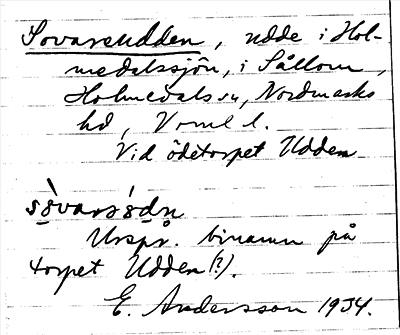 Sovareudden, udde i Hol-
medalssjön, i Sållom,
Holmedals sn, Nordmarks
hd, Vrml l.
Vid ödetorpet Udden
Urspr. binamn på
torpet Udden(?).
E. Andersson 1934.